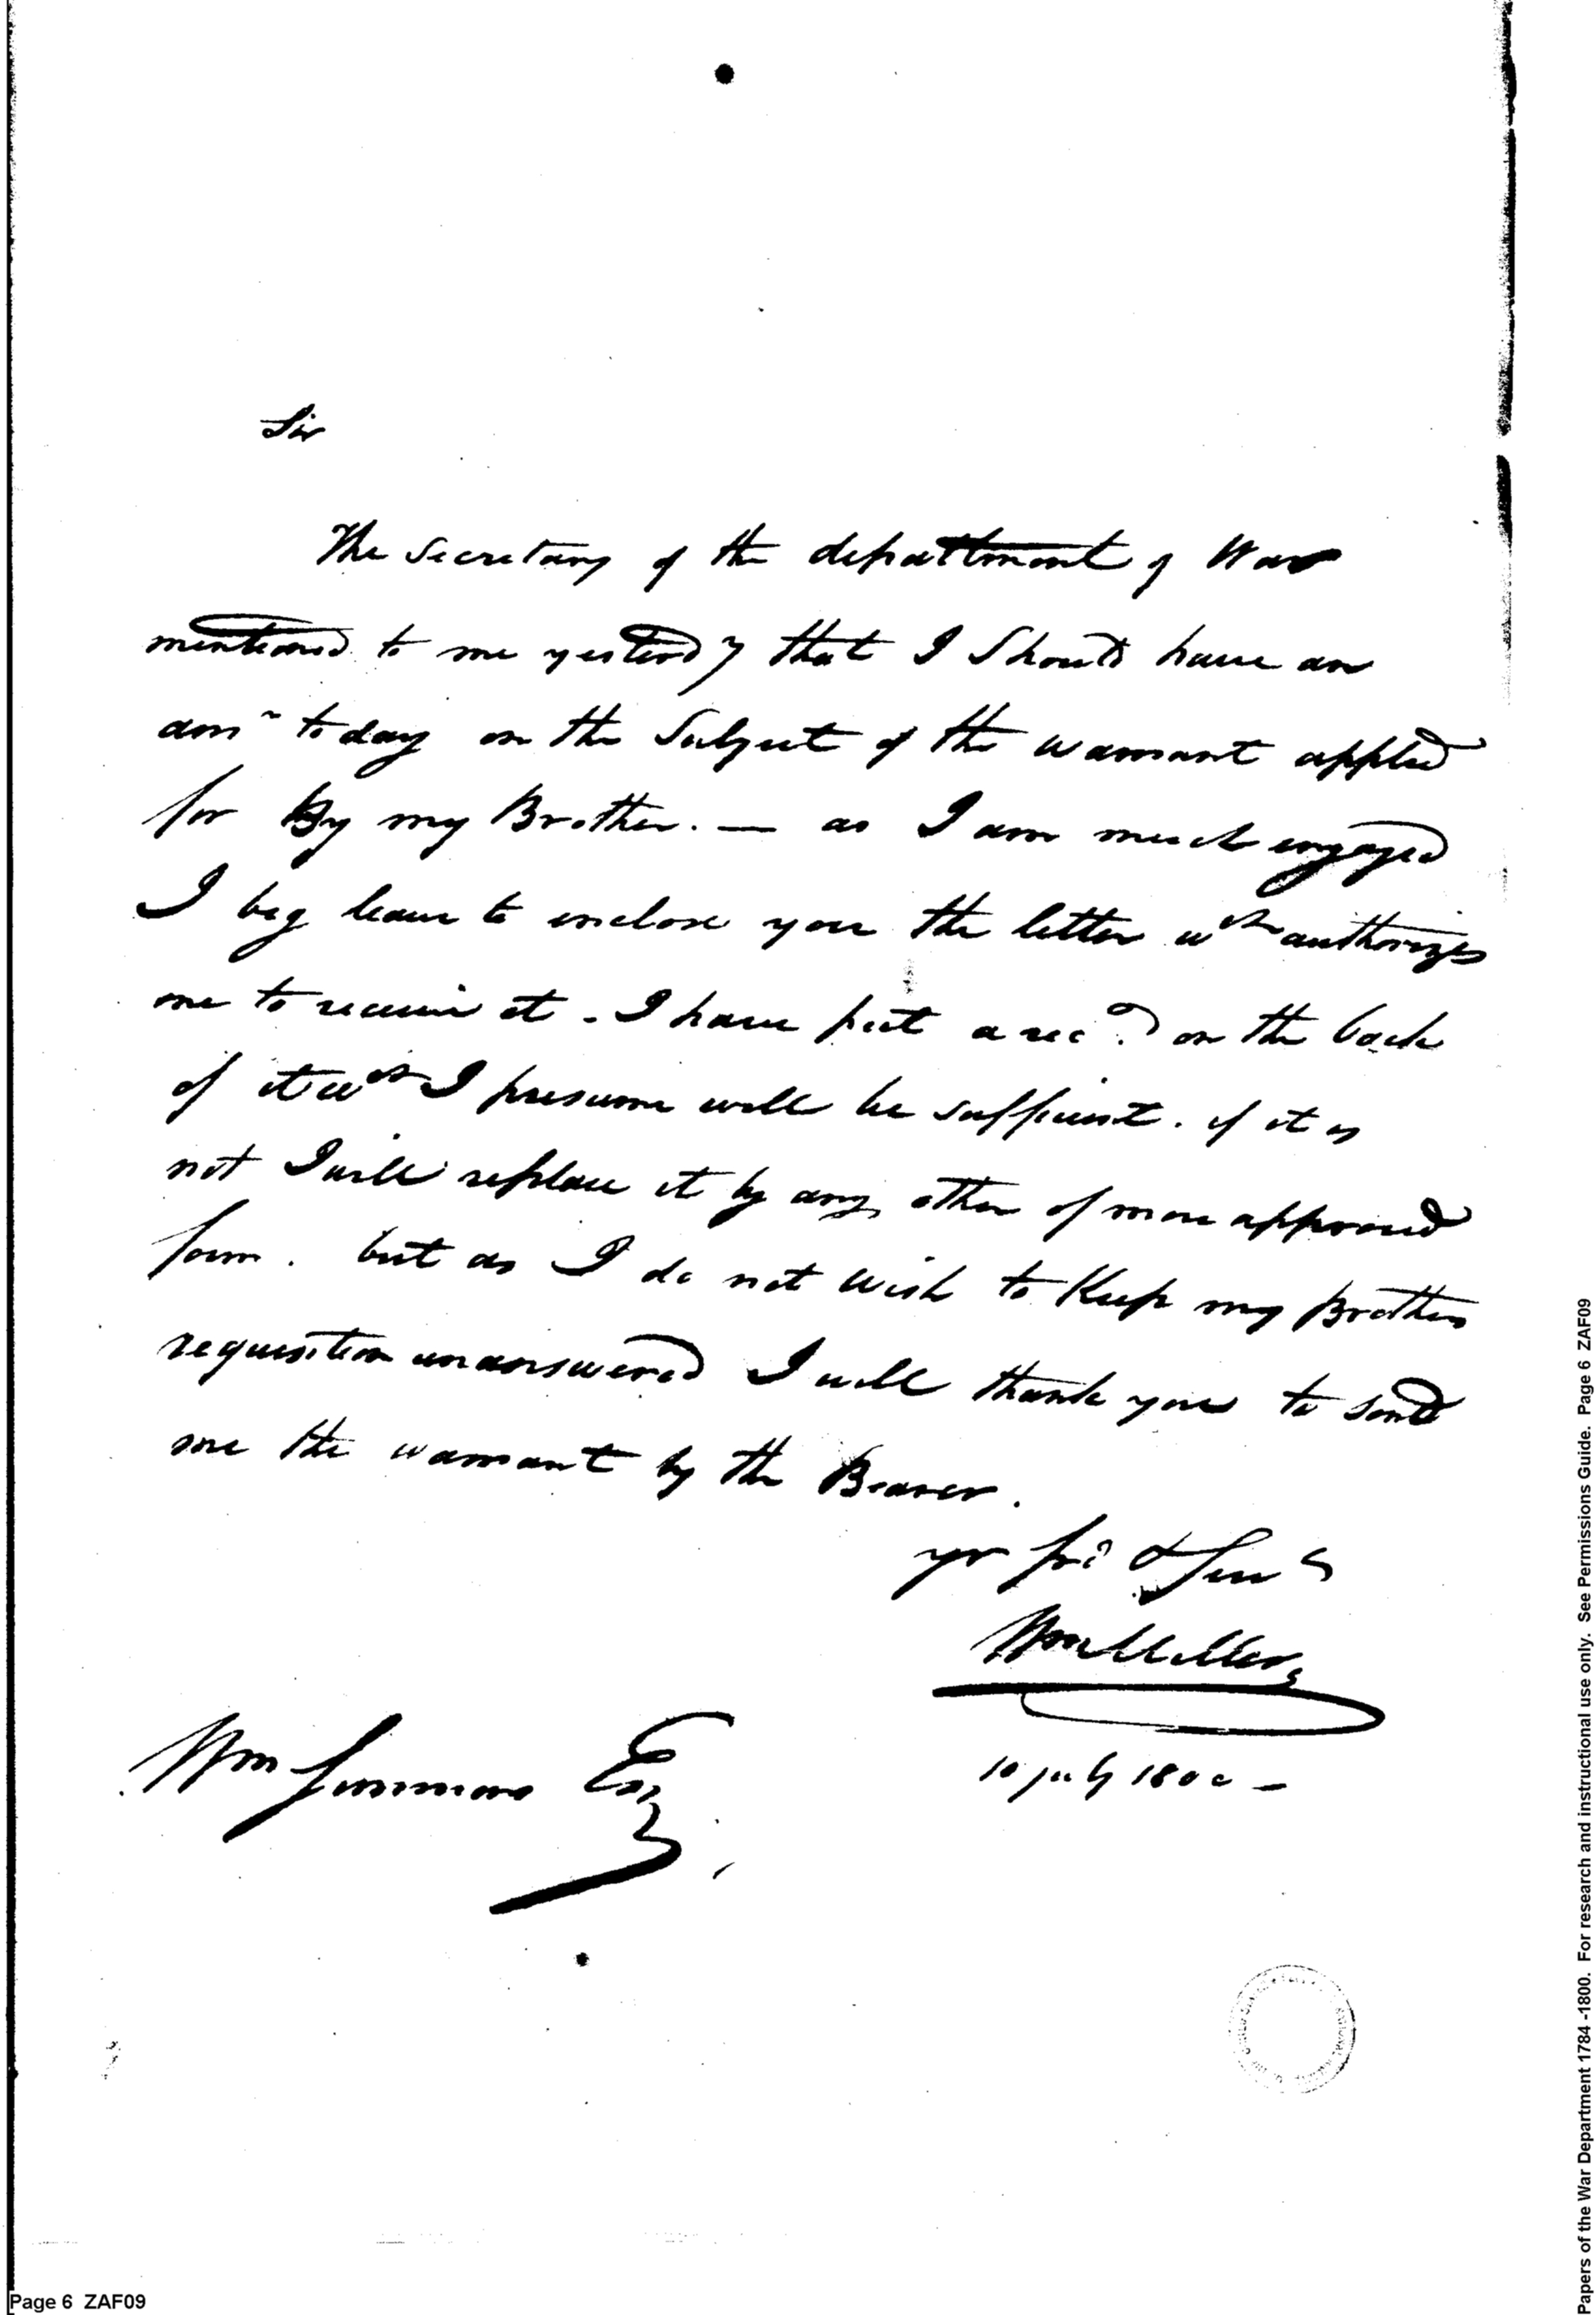 Sir
The Secretary of the department of War
mentioned to me yesterdy that I Should have an
ansr to day on the Subject of the warrant applied
for By my Brother. — as I am much engaged
I beg leave to enclose you the letter wch authorizes
me to receive it - I have put a rect on the back
of it wch I presume will be sufficient. if it is
not I will replace it by any other of more approved
form. but as I do not wish to Keep my Brothers
requisition unanswered I will thank you to send
me the warrant by the Bearer.
yr frd & Servt
Wm Miller
10 july 1800 —
Wm Simmons Esq
Page 6 ZAF09
Papers of the War Department 1784 -1800. For research and instructional use only. See Permissions Guide. Page 6 ZAF09